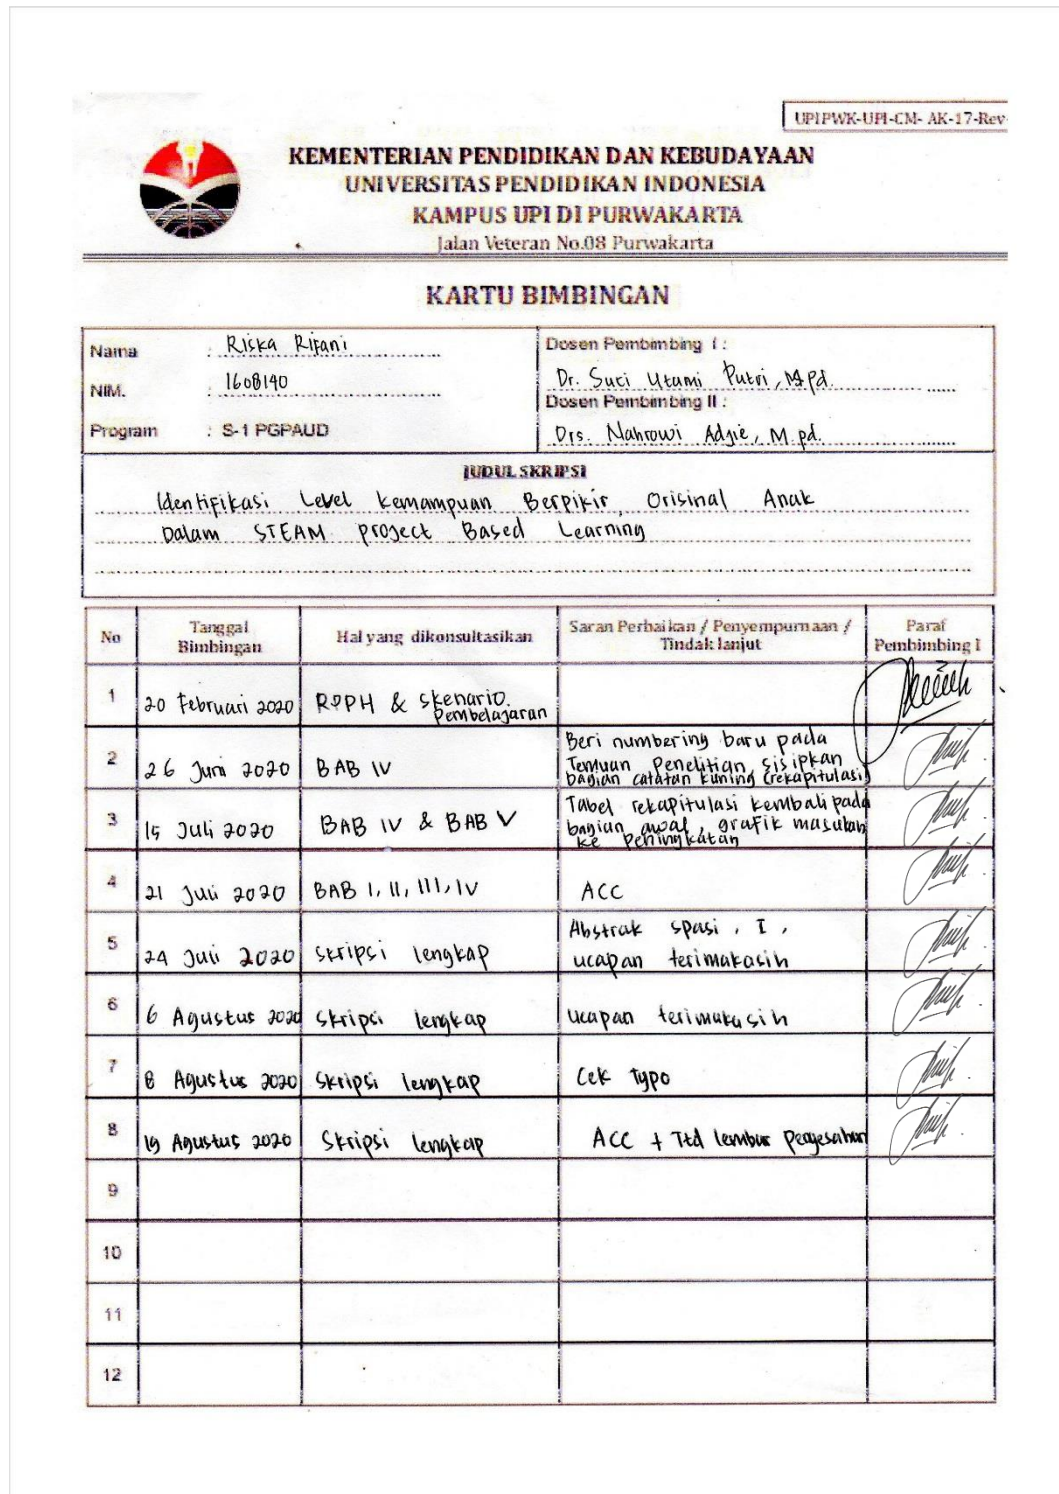 UPIPWK-UPI-CM- AK-17-Rev
KEMENTERIAN PENDIDIKAN DAN KEBUDAYAAN
UNIVERSITAS PENDIDIKAN INDONESIA
KAMPUS UPI DI PURWAKARTA
Jalan Veteran No.08 Purwakarta
KARTU BIMBINGAN
Nama : Riska Rifani
NIM. : 1608140
Program : S-1 PGPAUD
Dosen Pembimbing I :
Dr. Suci Utami Putri, M.Pd.
Dosen Pembimbing II :
Drs. Nahrowi Adjie, M.pd.
JUDUL SKRIPSI
Identifikasi Level Kemampuan Berpikir Orisinal Anak
Dalam STEAM Project Based Learning
No Tanggal Bimbingan Hal yang dikonsultasikan Saran Perbaikan / Penyempurnaan / Tindak lanjut Paraf Pembimbing I
1 20 Februari 2020 RPPH & Skenario Pembelajaran
2 26 Juni 2020 BAB IV Beri numbering baru pada
Temuan Penelitian, sisipkan
bagian catatan kuning (rekapitulasi)
3 15 Juli 2020 BAB IV & BAB V Tabel rekapitulasi kembali pada
bagian awal, grafik masukan
ke peningkatan
4 21 Juli 2020 BAB I, II, III, IV ACC
5 24 Juli 2020 Skripsi lengkap Abstrak spasi, I,
ucapan terimakasih
6 6 Agustus 2020 Skripsi lengkap ucapan terimakasih
7 8 Agustus 2020 Skripsi lengkap Cek Typo
8 19 Agustus 2020 Skripsi lengkap ACC + Ttd lembar pengesahan
9
10
11
12